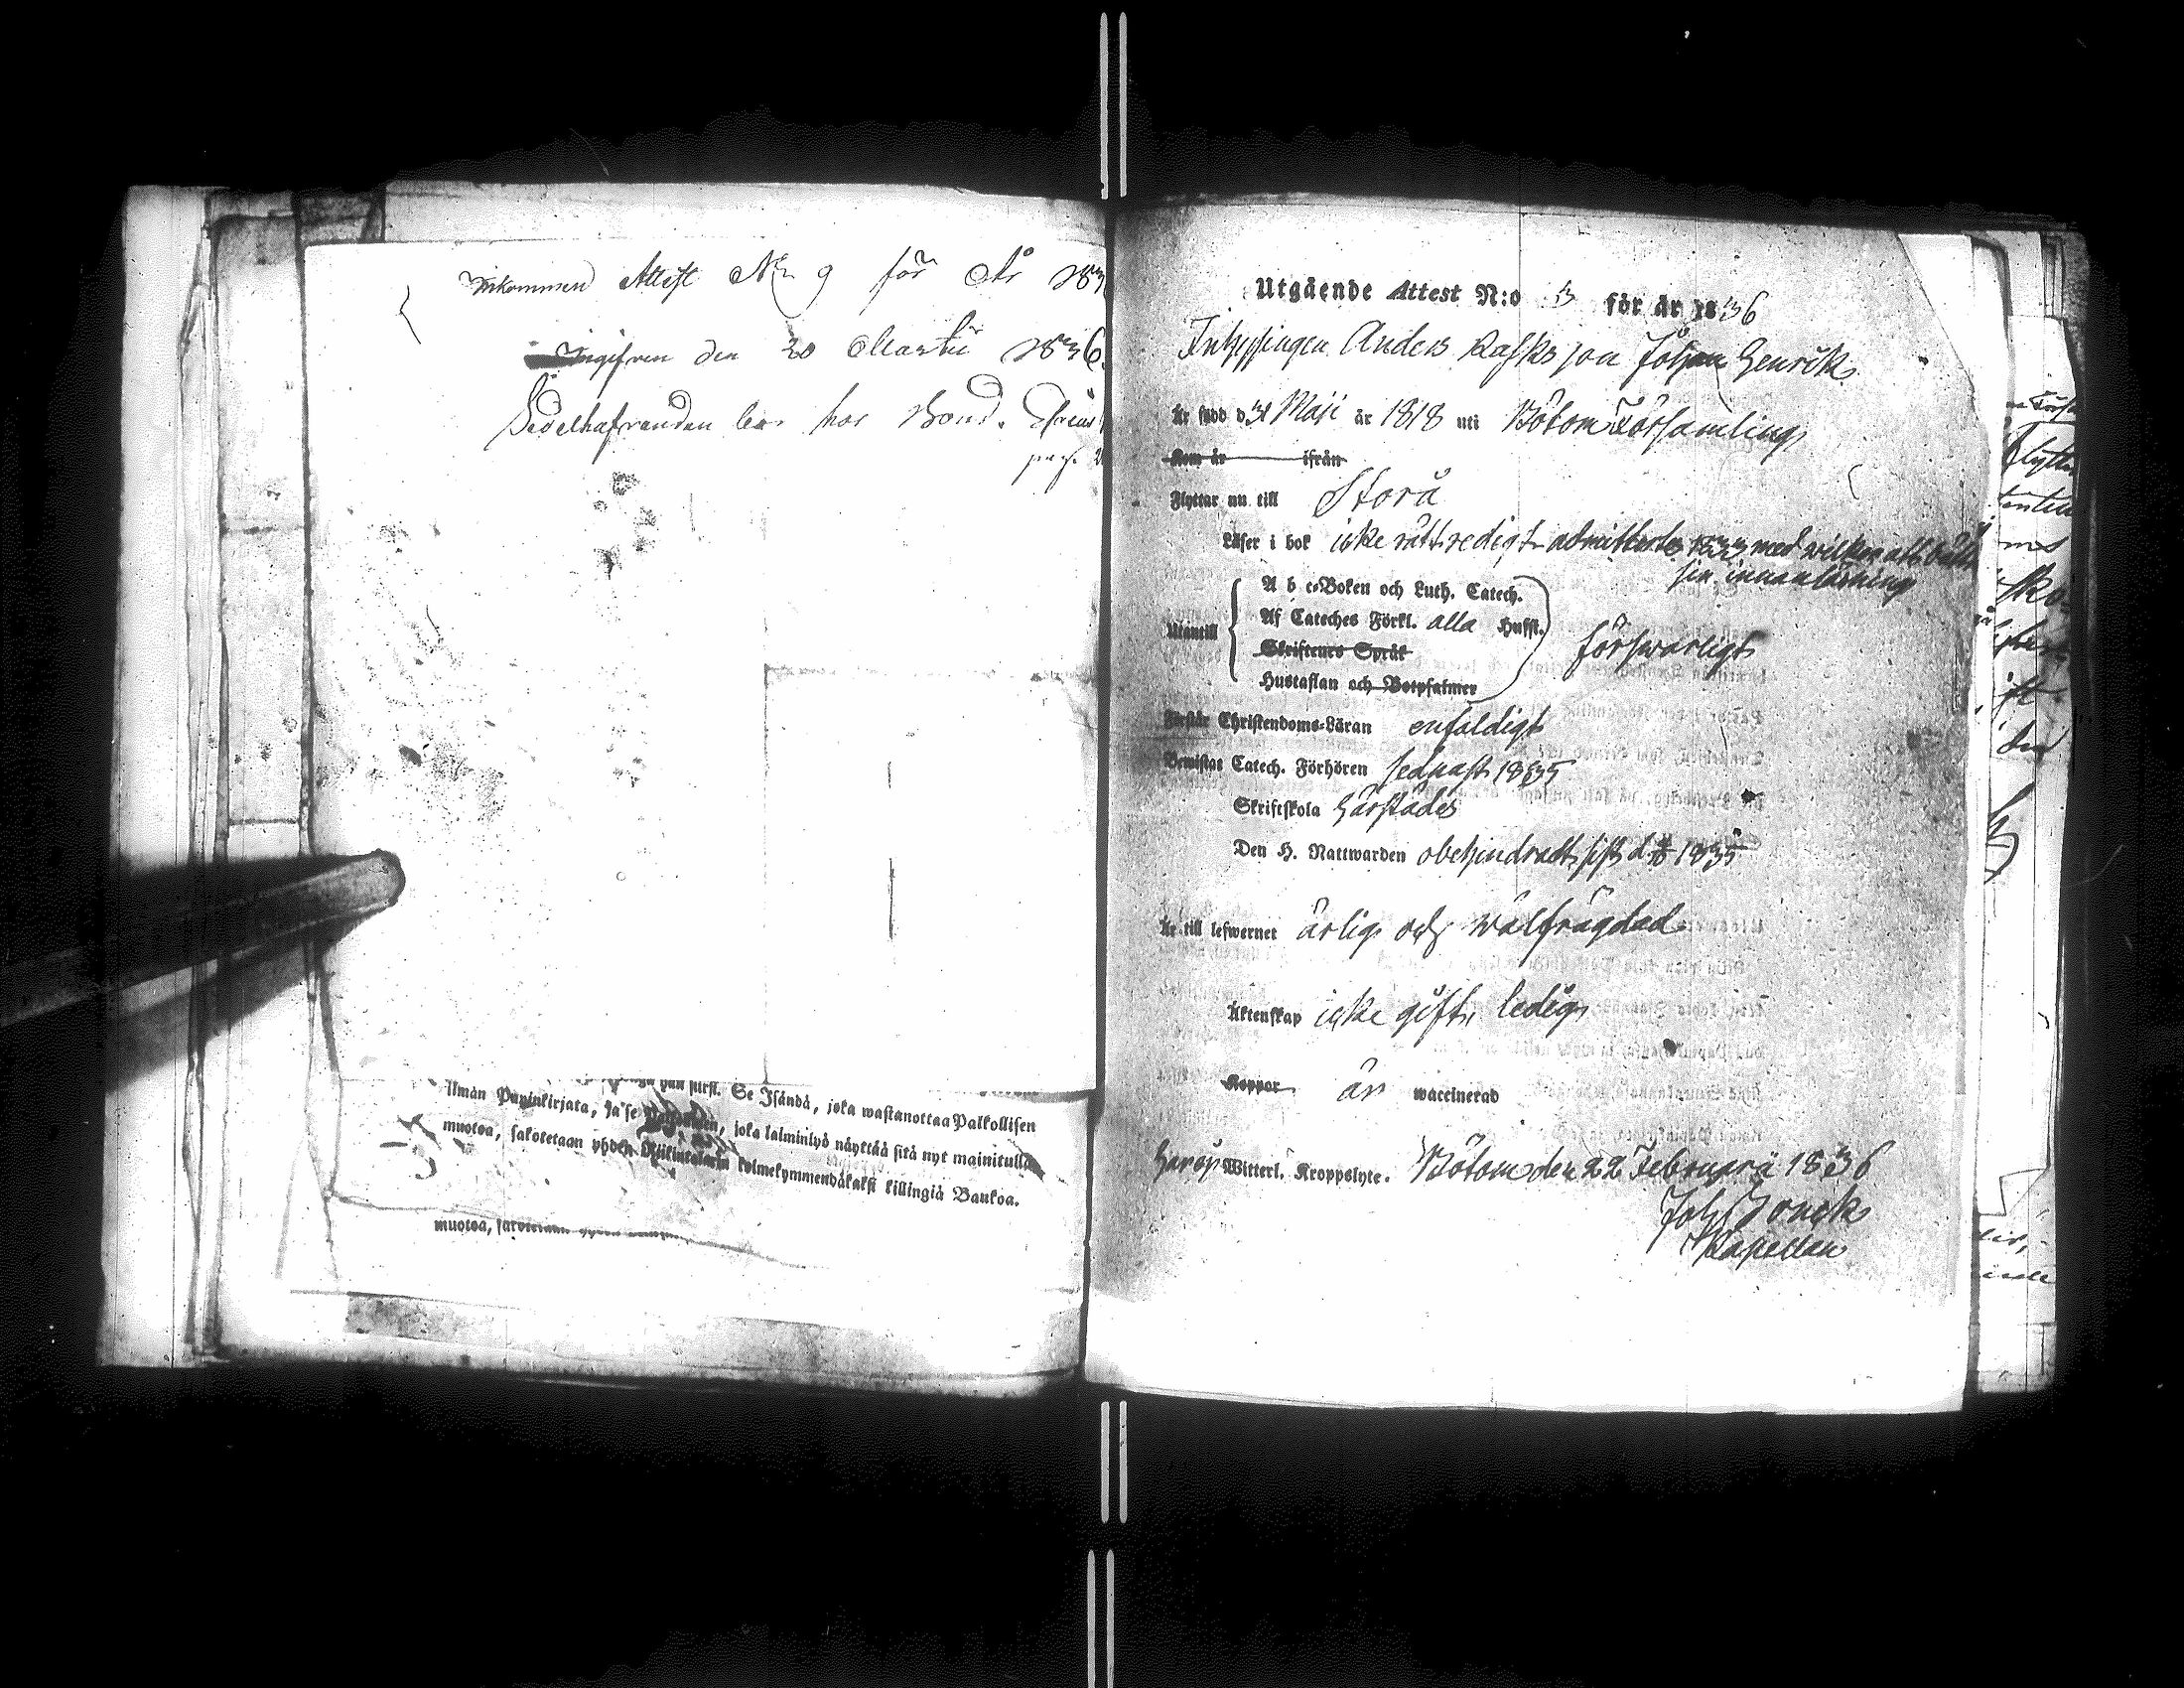 Inkommen Attest No 9 för År 183
Ingifven den 20 Martii 1836.
Sedelhafvanden bor hos Bond.
pag. 2
Ilman Papinkirjata, ja se, joka laiminlyö näyttää sitä nyt mainitulla
Se Isändä, joka wastanottaa Palkollisen
muotoa, sakotetaan yhden Riikintalarin kolmekymmendäkaksi killingiä Bankoa.
muotoa,
Utgående Attest N:o 3 för år 1836
Inhysingen Anders Rasks son Johan Henrik
Är född d 31 Maji år 1818 uti Bötom Församling
Kom år ifrån
Flyttar nu till Storå
Läser i bok icke rätt redigt admitterts 1833 med wilkor att bättra
sin innanläsning
Utantill
A b c-Boken och Luth. Catech.
Af Cateches Förkl. alla Hufst.
Skriftenes Språk
Hustaflan och Botpsalmer
förswarligt
Förstår Christendoms-Läran enfaldigt
Bewistat Catech. Förhören sednast 1835
Skriftskola härstädes
Den H. Nattwarden obehindradt, sist d 1835
Är till lefwernet ärlig och wälfrägdad
Äktenskap icke gift, ledig
Koppor är waccinerad
Har ej Witterl. Kroppslyte. Bötom den 22 Februarii 1836
Joh Bonck
Kapellan